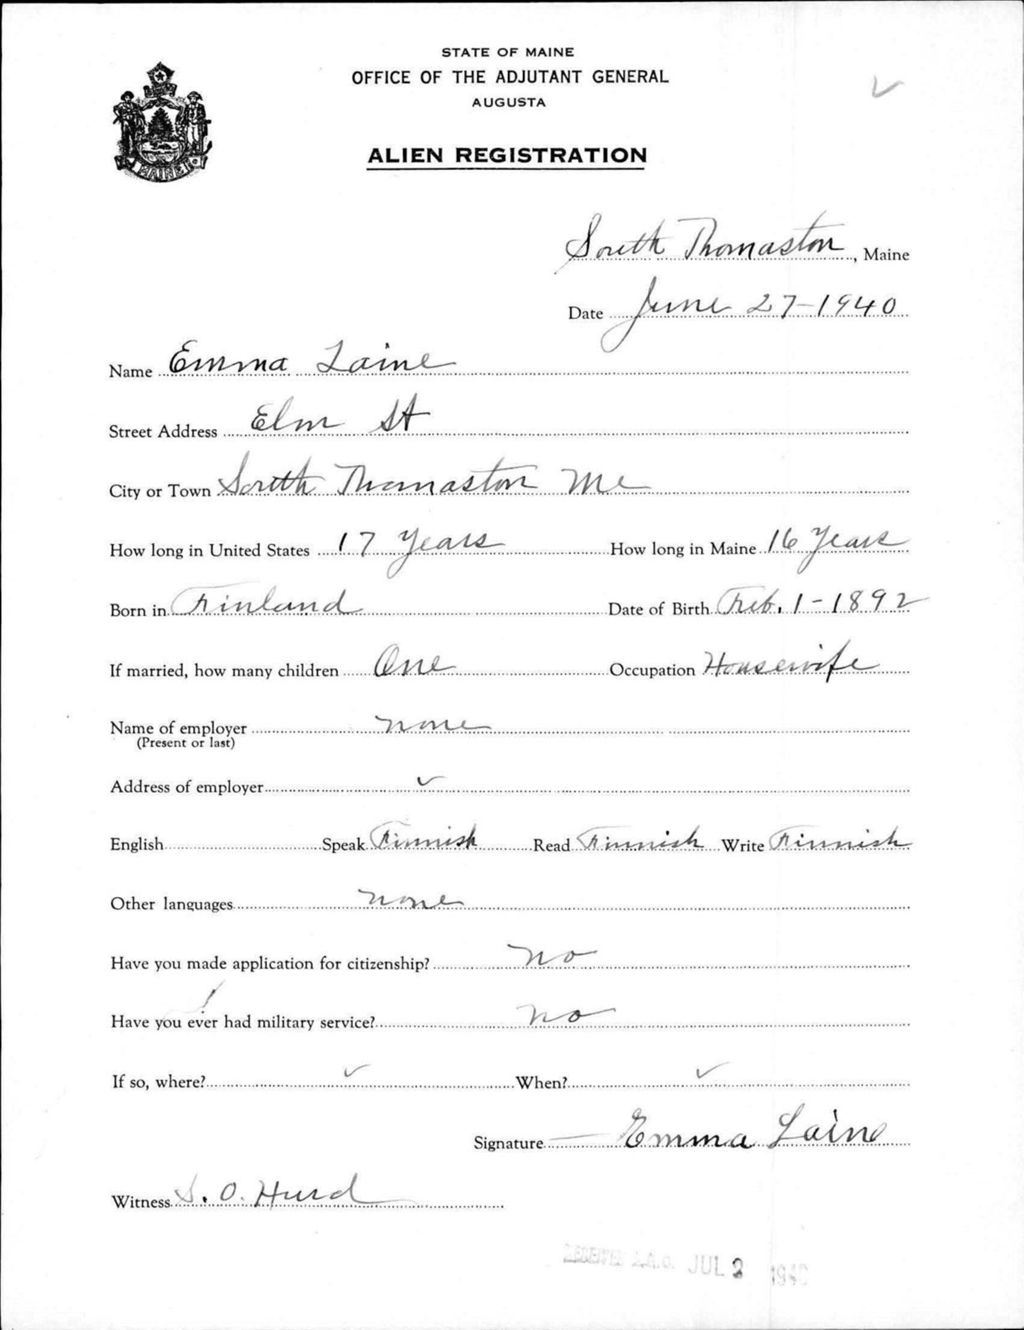 STATE OF MAINE
OFFICE OF THE ADJUTANT GENERAL
AUGUSTA
ALIEN REGISTRATION
MAINE
South Thomaston, Maine
Date June 27-1940
Name Emma Laine
Street Address Elm St
City or Town South Thomaston Me
How long in United States 17 Years How long in Maine 16 Years
Born in Finland Date of Birth Feb. 1-1892
If married, how many children One Occupation Housewife
Name of employer none
(Present or last)
Address of employer ✓
English Speak Finnish Read Finnish Write Finnish
Other languages none
Have you made application for citizenship? no
Have you ever had military service? no
If so, where? ✓ When? ✓
Signature Emma Laine
Witness S. O. Hurd
RECEIVED A.G.O. JUL 2 1940